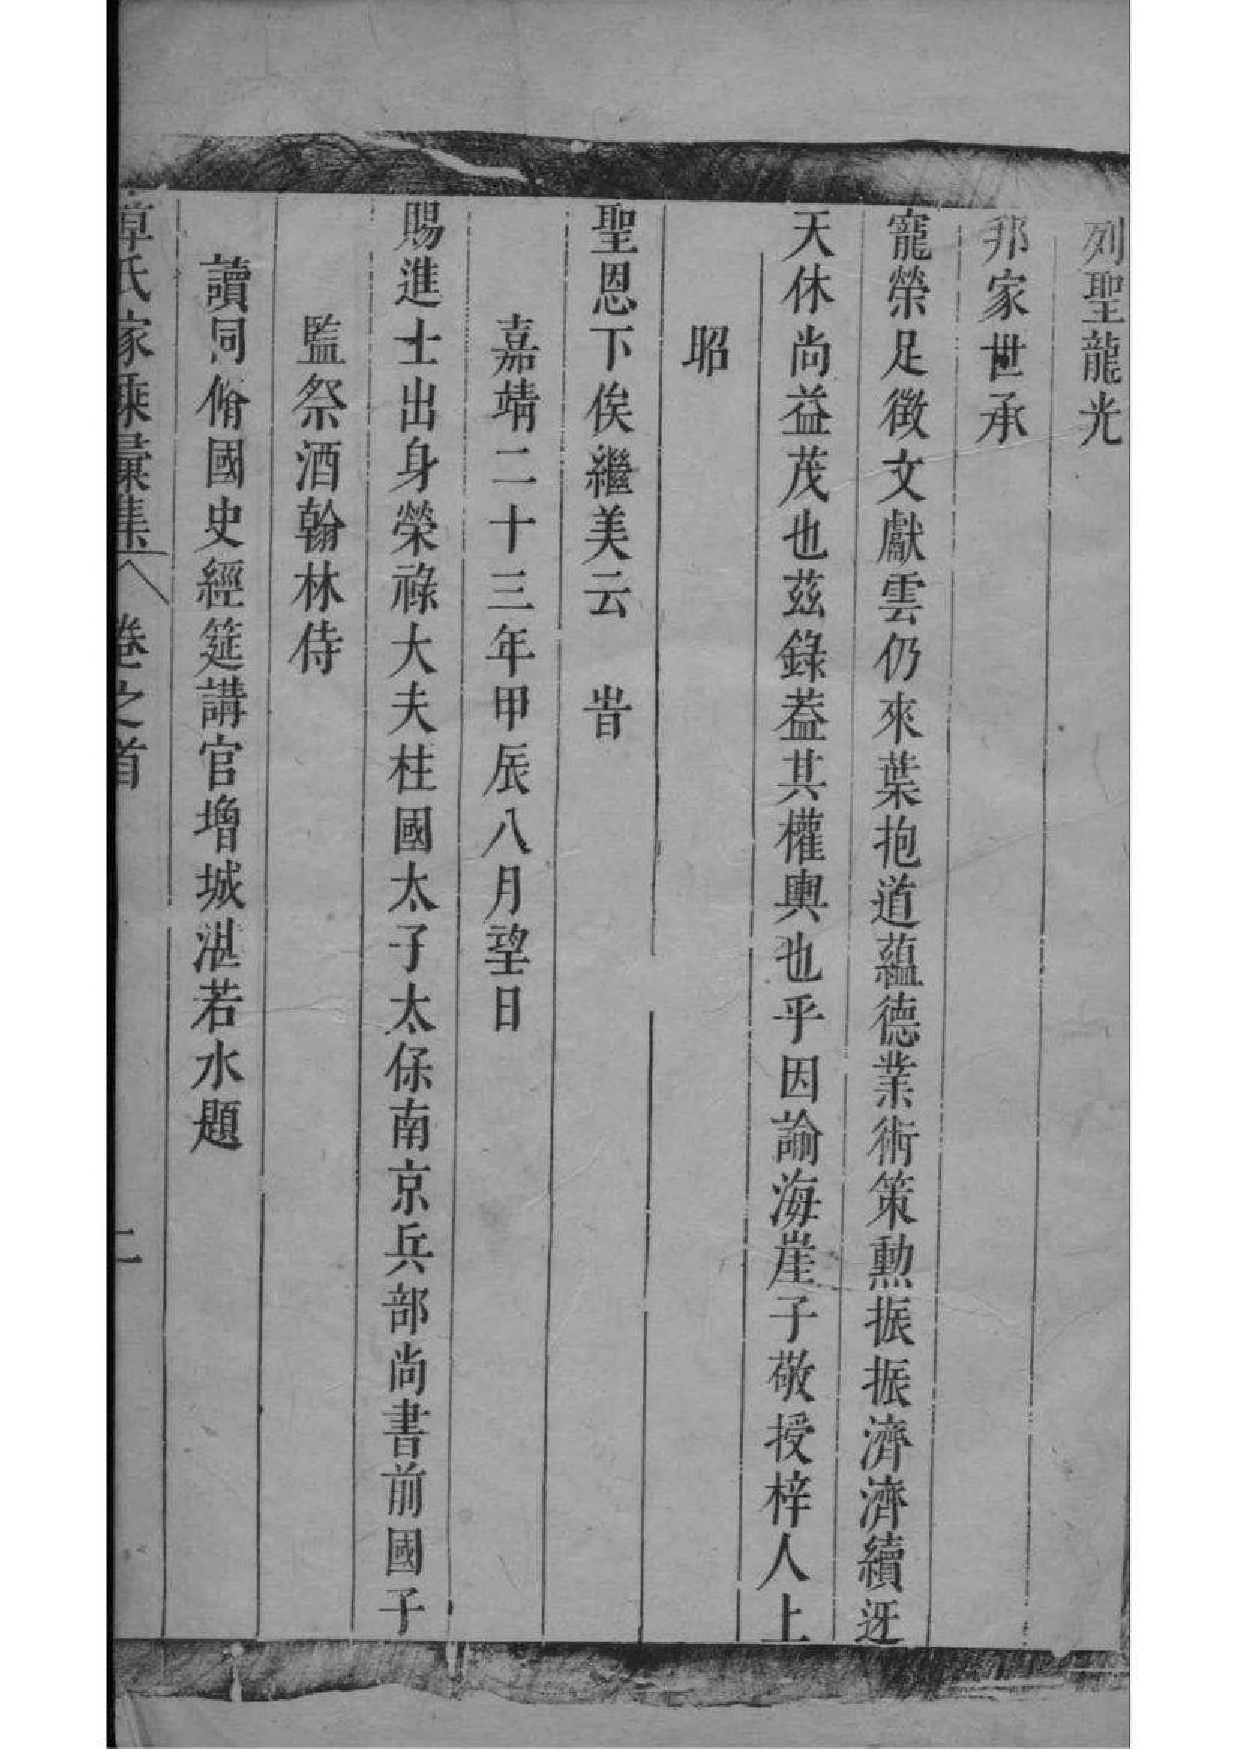 列聖龍光
邦家世承
寵榮足徵文獻雲仍來葉抱道蘊德業術策勲振振濟濟續迓
天休尚益茂也茲錄葢其權輿也乎因諭海崖子敬授梓人上
昭
聖恩下俟繼美云 旹
嘉靖二十三年甲辰八月望日
賜進士出身榮祿大夫柱國太子太保南京兵部尚書前國子
監祭酒翰林侍
讀同脩國史經筵講官增城湛若水題
氏家乘彙集 卷之首 二